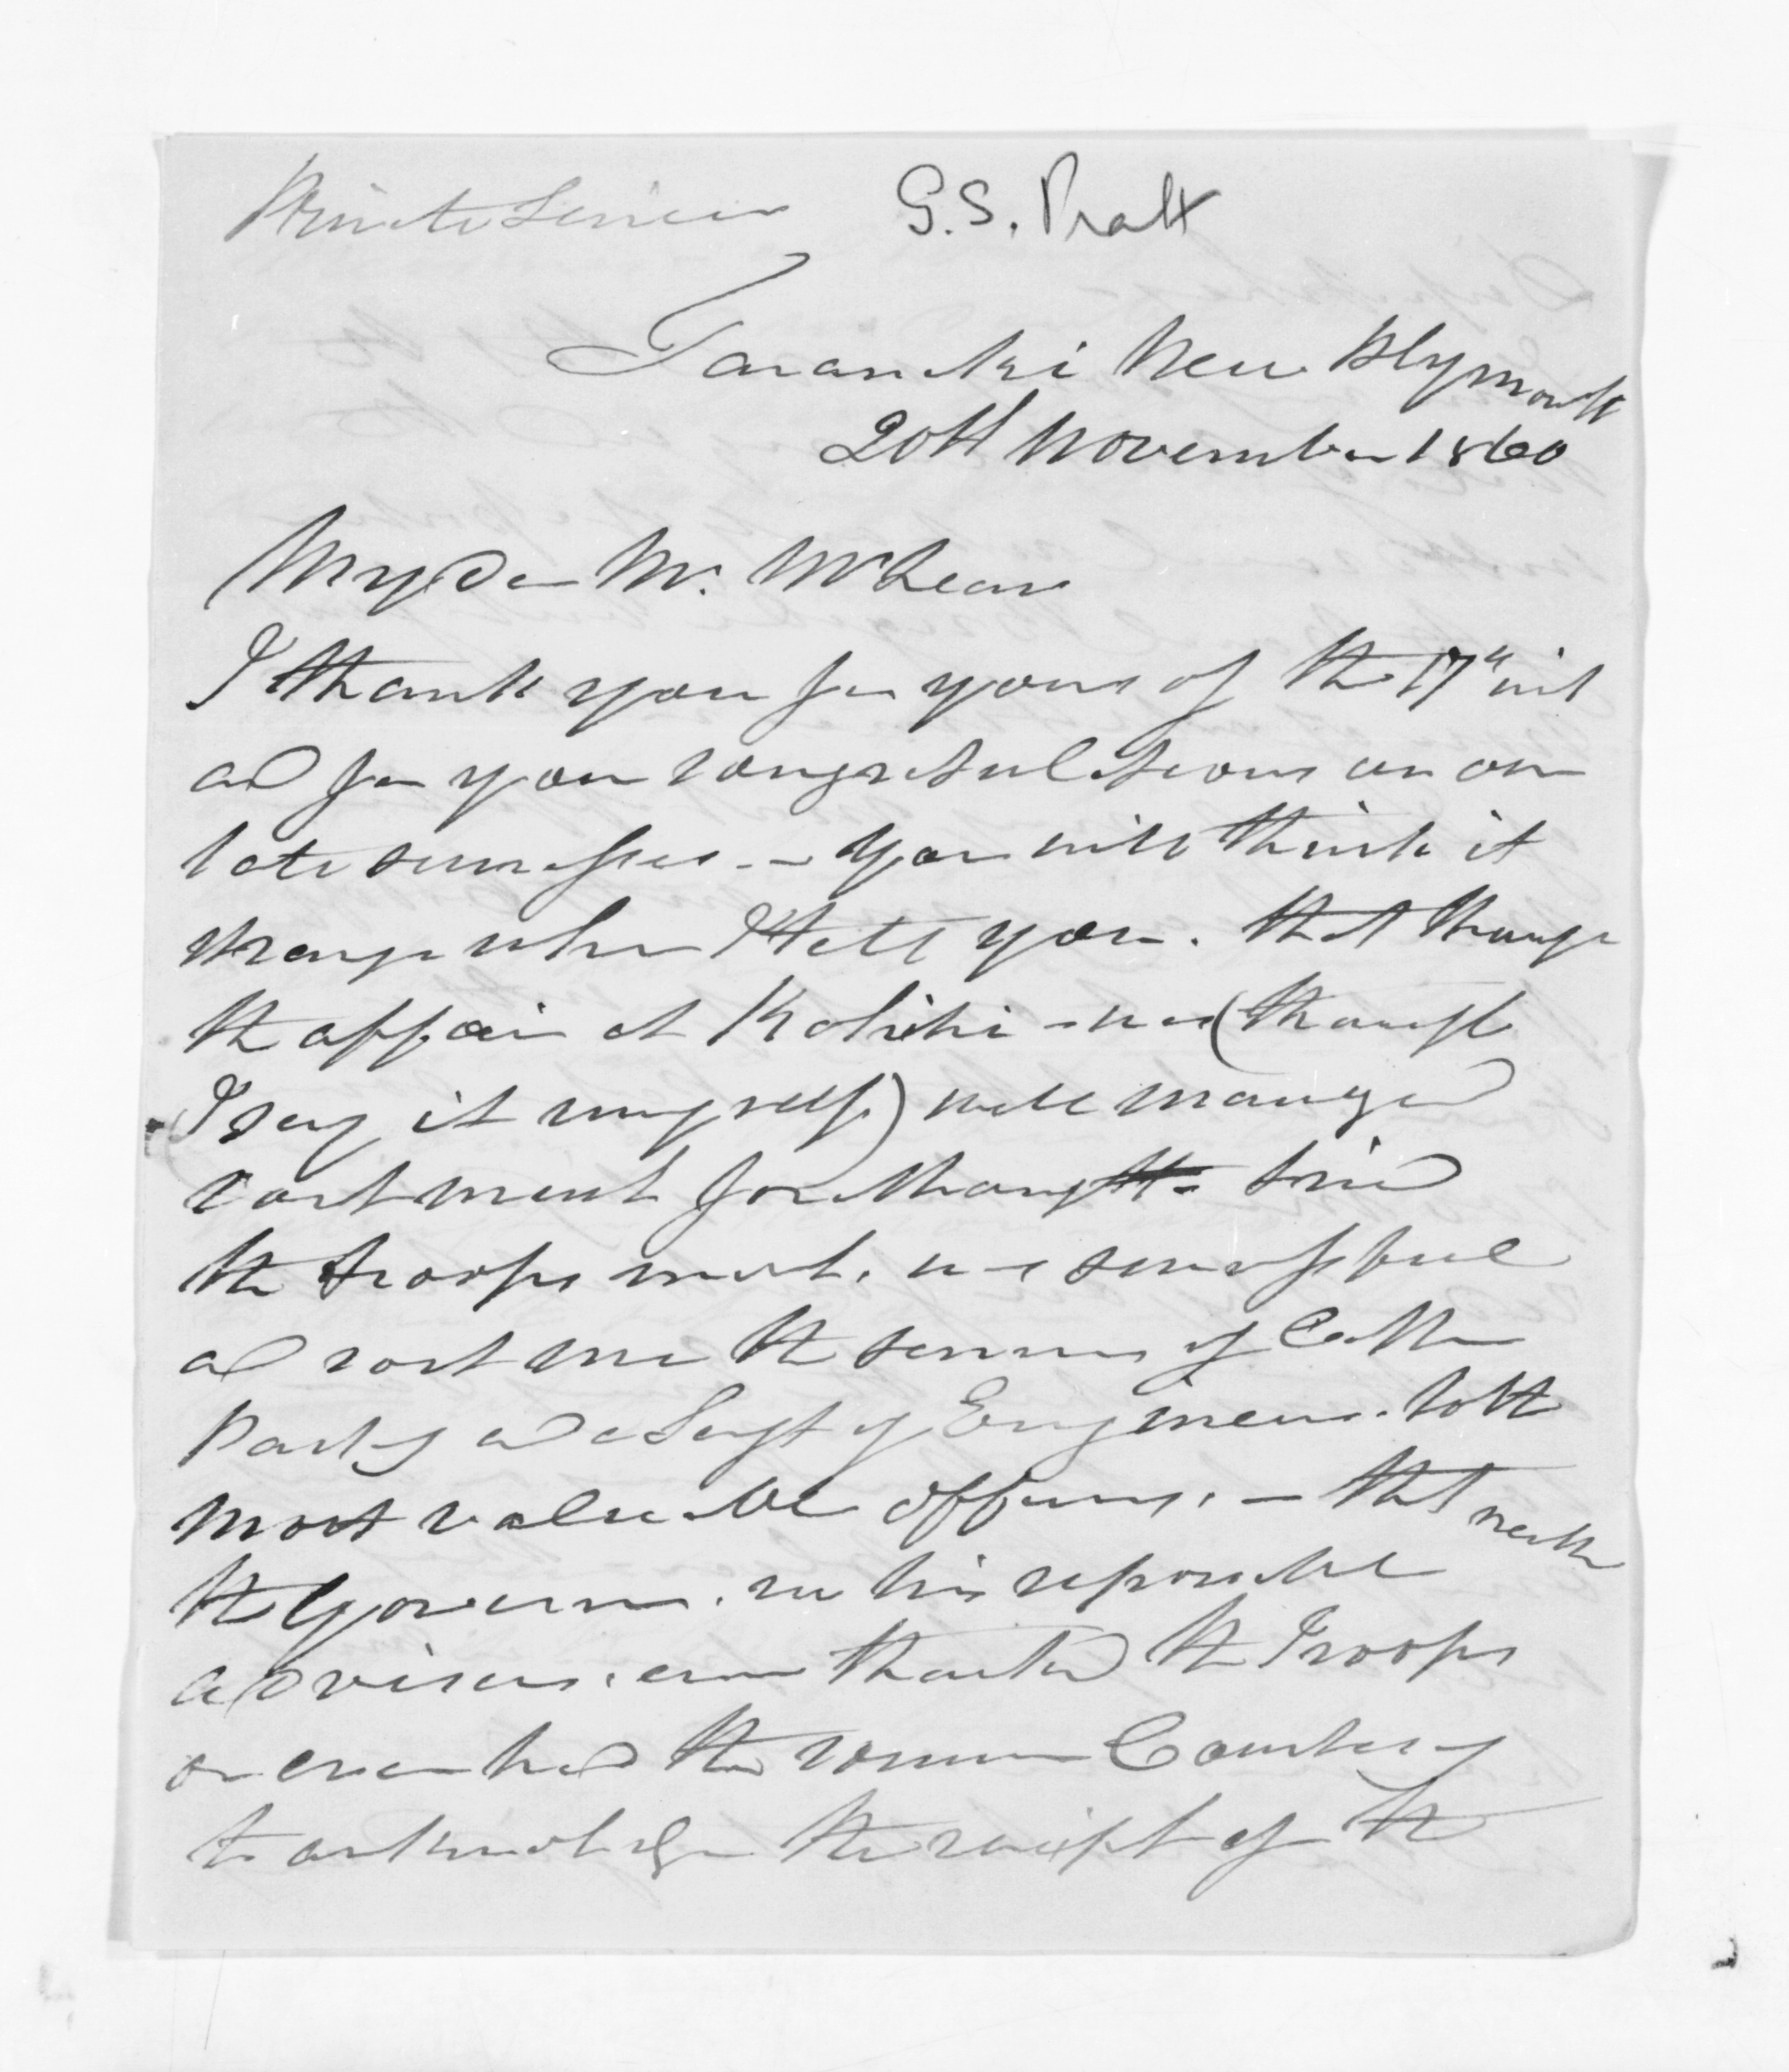 Private
G.S. Pratt
Taranaki New Plymouth
20th November 1860
My Dear Mr. McLean
I thank you for yours of the 17th inst
and for your congratulations on our
late successes - You will think it
strange when I tell you. that though
the affair at Kohihi - was (though
I say it myself) well managed
cost much forethought tried
the troops much. was successful
and cost me the services of Capth
Party and a Sergt of Engineers. both
most valuable officers. - that neither
the Governor. or his responsible
advisers. ever thanked the Troops
or even had the common Courtesy
to acknowledge the receipt of the